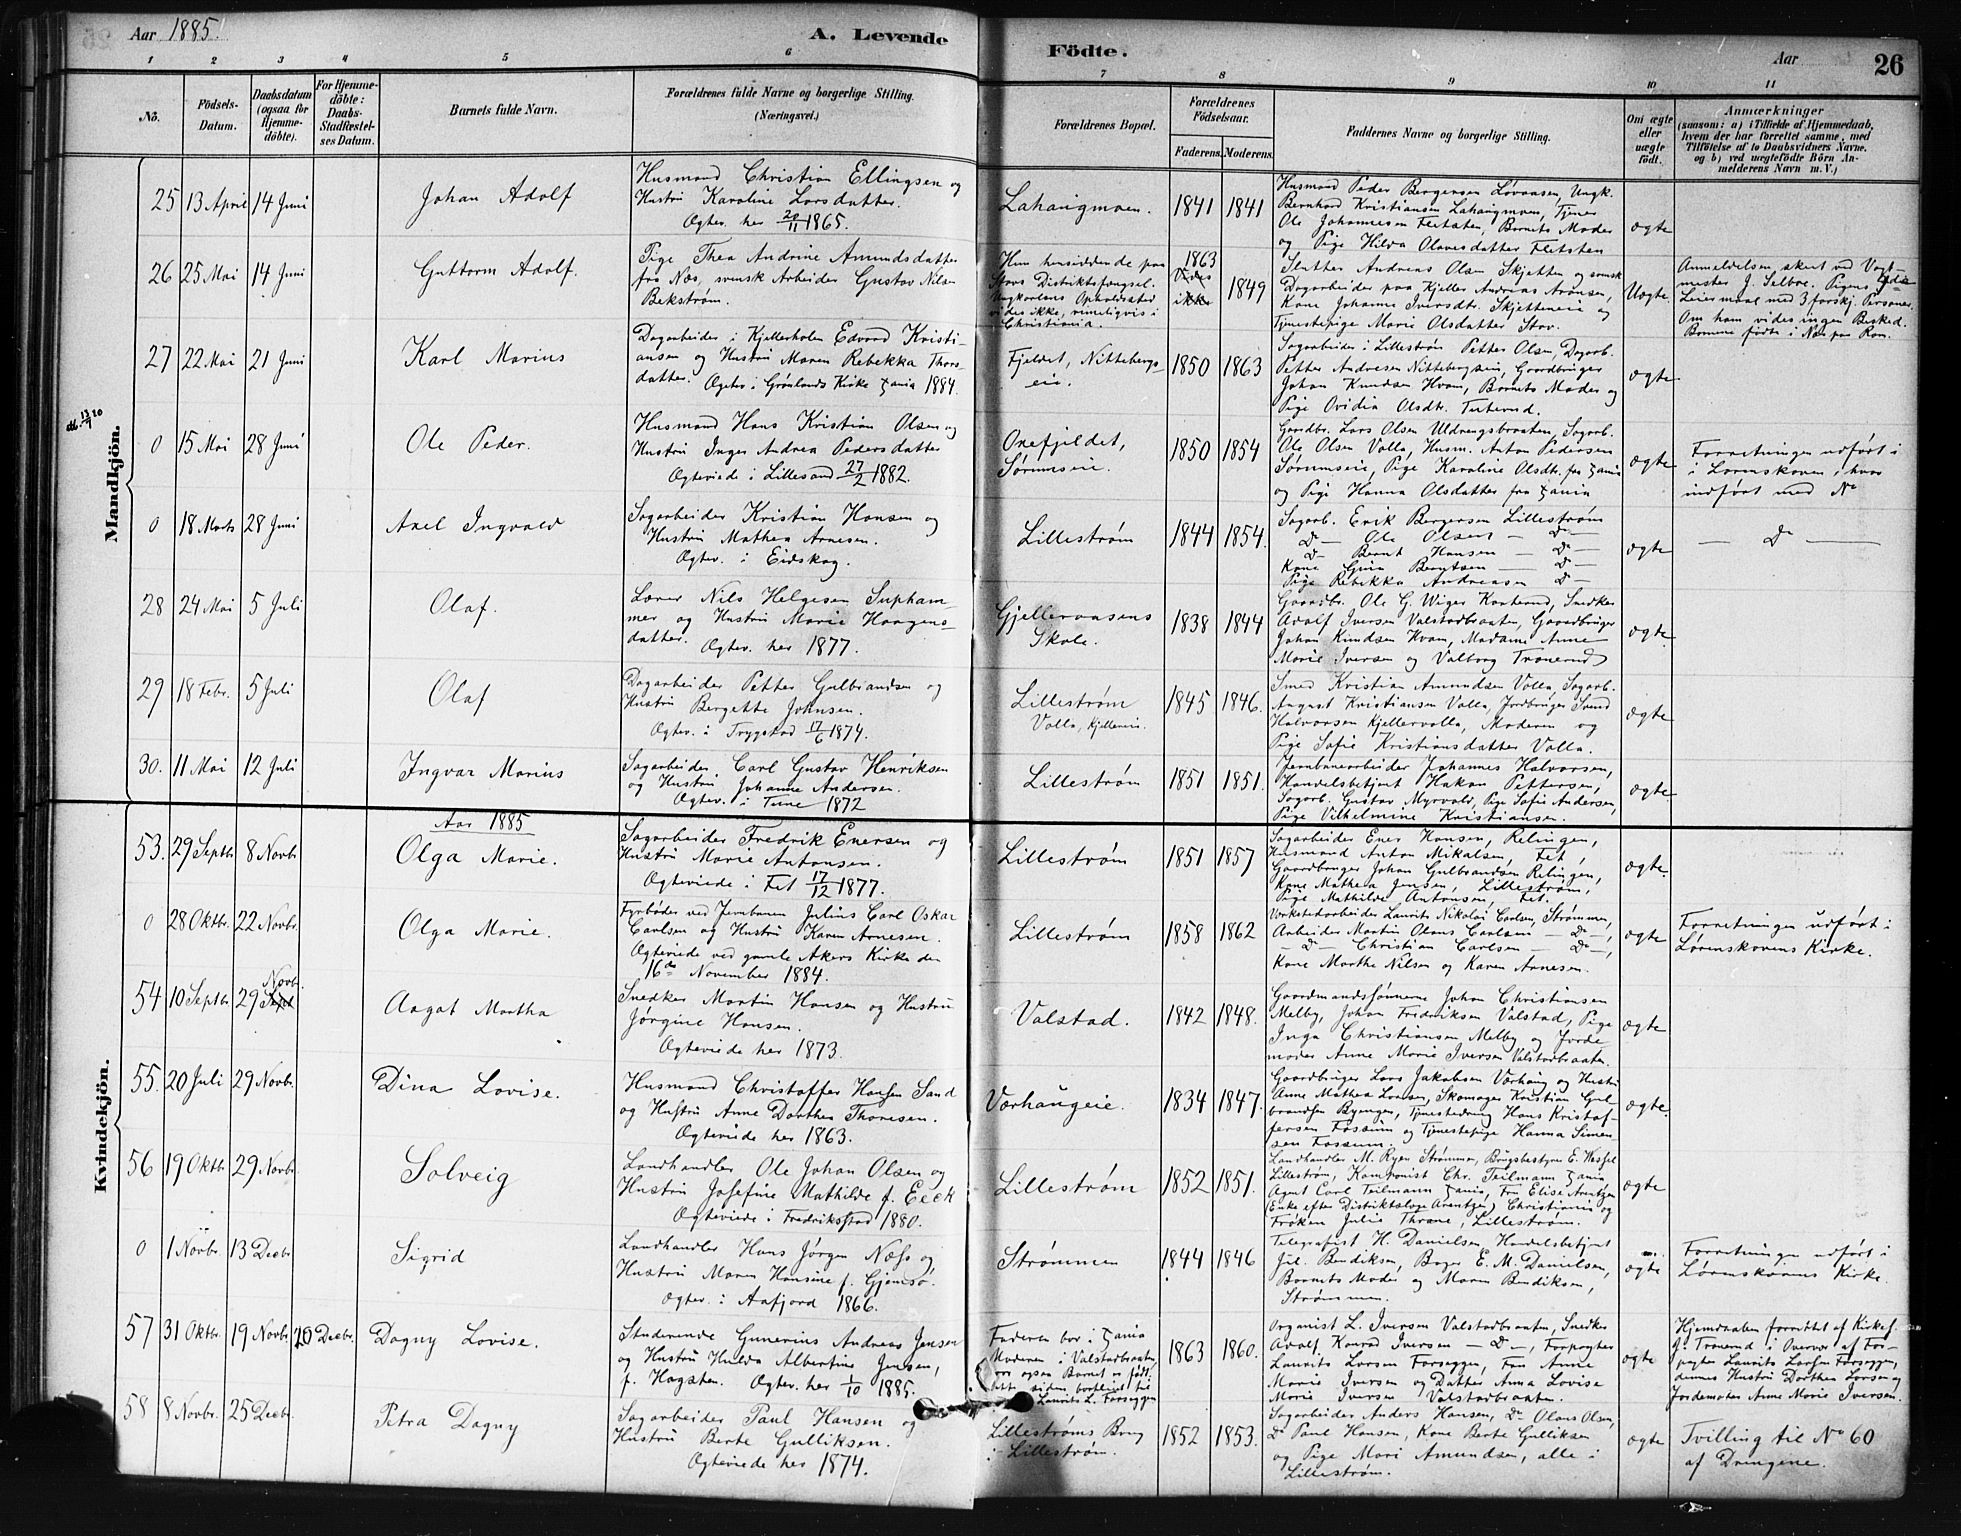 Aar 1885.
A. Levende
Födte.
Aar
26
1 2 3 4 5 6 7 8 9 10 11
Nö.
Födsels-Datum.
Daabsdatum (ogsaa for Hjemmedöbte).
For Hjemmedöbte: Daabs-Stadfæstelses Datum.
Barnets fulde Navn.
Forældrenes fulde Navne og borgerlige Stilling. (Næringsvei.)
Forældrenes Bopæl.
Forældrenes Födselsaar.
Faderens. Moderens.
Faddernes Navne og borgerlige Stilling.
Om ægte eller uægte födt.
Anmærkninger
(saasom: a) i Tilfælde af Hjemmedaab, hvem der har forrettet samme, med Tilföielse af to Daabsvidners Navne. og b) ved uægtefödte Börn Anmelderens Navn m. V.)
Mandkjön.
25 13 April 14 Juni
Johan Adolf
Husmand Christian Ellingsen og
Hustru Karoline Larsdatter.
Ægtev. her 20/11 1865.
Lahaugmoen.
1841 1841
Husmand Peder Bergersen Løvaasen, Ungk.
Bernhard Kristiansen Lahaugmoen, Tjener
Ole Johannesen Fletsten, Barnets Moder
og Pige Hilda Olavesdatter Fletsten
ægte
26 25 Mai 14 Juni
Guttorm Adolf.
Pige Thea Andrine Amundsdatter
fra Nes, svensk Arbeider Gustav Nilsen
Bekstrøm.
Hun hensiddende paa
Stavs Distriktsfængsel.
Ungkarlens Opholdssted
vides ikke, rimeligvis i
Christiania.
1863
Vides
ikke 1849
Slutter Andreas Olsen Skjetten og svensk
Dagarbeider paa Kjeller Andreas Aronsen,
Kone Johanne Iversdtr. Skjetteneie og
Tjenestepige Marie Olsdatter Stav.
Uægte.
Anmeldelsen skeet ved Vagt-
mester J. Selboe. Pigens
Leiermaal med 3 forskj. Personer.
Om ham vides ingen Besked.
Barnene fødte i Nes paa Rom.
27 22 Mai 21 Juni
Karl Marius
Dagarbeider i Kjellerholen Edvard Kristi-
ansen og Hustru Maren Rebekka Thors-
datter. Ægtev. i Grønlands Kirke Xania 1884.
Fjeldet, Nittebergs-
eie.
1850 1863
Sagarbeider i Lillestrøm Petter Olsen, Dagarb.
Petter Andresen Nittebergseie, Gaardbruger
Johan Knudsen Hvam, Barnets Moder og
Pige Ovidia Olsdtr. Tuterud.
ægte
0 15 Mai 28 Juni
Ole Peder.
Husmand Hans Kristian Olsen og
Hustru Inger Andrea Pedersdatter
Ægteviede i Lillesand 27/2 1882.
Oxefjeldet,
Sørumseie.
1850 1854
Gaardbr. Lars Olsen Uldrengsbraaten, Sagarb.
Ole Olsen Volla, Husm. Anton Pedersen
Sørumseie, Pige Karoline Olsdt. fra Xania
og Pige Hanna Olsdatter fra Xania
ægte
Forretningen udført i
i Lørnskoven, hvor
indført med No
0 18 Marts 28 Juni
Axel Ingvald
Sagarbeider Kristian Hansen og
Hustru Mathea Arnesen.
Ægtev. i Eidskog.
Lillestrøm
1844 1854.
Sagarb. Erik Bergersen Lillestrøm
Do — Ole Olsen — Do —
Do Bernt Hansen — Do —
Kone Gina Berntsen — Do —
Pige Rebekka Andreasen Do —
ægte
— Do —
28 24 Mai 5 Juli
Olaf.
Lærer Nils Helgesen Supham-
mer og Hustru Marie Haagens-
datter. Ægtev. her 1877.
Gjelleraasens
Skole.
1838 1844
Gaardbr. Ole G. Wiger Kaaterud, Snedker
Adolf Iversen Valstadbraaten, Gaardbruger
Johan Knudsen Hvam, Madame Anne
Marie Iversen og Valborg Tranerud
ægte
29 18 Febr. 5 Juli
Olaf
Dagarbeider Petter Gulbrandsen og
Hustru Bergette Johnsen.
Ægtev. i Trygstad 17/6 1874.
Lillestrøm
Volla, Kjellereie.
1845 1846.
Smed Kristian Amundsen Volla, Sagarb.
August Kristiansen Volla, Jordbruger Svend
Halvorsen Kjellervolla, Moderen og
Pige Sofie Kristiansdatter Volla.
ægte
30. 11 Mai 12 Juli
Ingvar Marius
Sagarbeider Carl Gustav Henriksen
og Hustru Johanne Andersen.
Ægtev. i Tune 1872
Lillestrøm
1851 1851.
Jernbanearbeider Johannes Halvorsen,
Handelsbetjent Hakon Pettersen,
Sagarb. Gustav Myrvold, Pige Sofie Andersen,
Pige Vilhelmine Kristiansen.
ægte.
Kvindekjön.
Aar 1885
53. 29 Septbr 8 Novbr
Olga Marie.
Sagarbeider Fredrik Enersen og
Hustru Marie Antonsen.
Ægteviede i Fet 17/12 1877.
Lillestrøm
1851 1857
Sagarbeider Ener Hansen, Relingen,
Husmand Anton Mikalsen, Fet,
Gaardbruger Johan Gulbrandsen Relingen,
Kone Mathea Jensen, Lillestrøm,
Pige Mathilde Antonsen, Fet.
ægte.
0 28 Oktbr. 22 Novbr.
Olga Marie.
Fyrbøder ved Jernbanen Julius Carl Oskar
Carlsen og Hustru Karen Arnesen.
Ægteviede ved gamle Akers Kirke den
16de November 1884.
Lillestrøm
1858 1862
Værkstedarbeider Laurits Nikolai Carlsen, Strømmen,
Arbeider Martin Olaus Carlsen — Do —,
— Do — Christian Carlsen — Do —,
Kone Marthe Nilsen og Karen Arnesen.
ægte
Forretningen udført i
Lørenskovens Kirke.
54 10 Septbr. 29 Sept Novbr.
Aagot Martha
Snedker Martin Hansen og Hustru
Jørgine Hansen.
Ægteviede her 1873.
Valstad.
1842 1848.
Gaardmandssønnerne Johan Christiansen
Melby, Johan Fridriksen Valstad, Pige
Inga Christiansen Melby og Jorde-
moder Anne Marie Iversen Valstadbraaten
ægte
55. 20 Juli 29 Novbr.
Dina Lovise.
Husmand Christoffer Hansen Sand
og Hustru Anne Dorthea Thoresen.
Ægteviede her 1863.
Vorhaugeie.
1834 1847.
Gaardbruger Lars Jakobsen Vorhaug og Hustru
Anne Mathea Larsen, Skomager Kristian Gul-
brandsen Byenget, Tjenestedreng Hans Kristof-
fersen Fossum og Tjenestepige Hanna Simen-
sen Fossum.
ægte.
56 19 Oktbr 29 Novbr.
Solveig
Landhandler Ole Johan Olsen og
Hustru Josefine Mathilde f. Eeck
Ægteviede i Fredriksstad 1880.
Lillestrøm
1852 1851.
Landhandler M. Ryen Strømmen, Brugsbestyrer E. Wessel
Lillestrøm, Komponist Chr. Teilmann Xania,
Agent Carl Teilmann Xania, Fru Elise Arentzen
(Enke efter Distriktslæge Arentzen) Christiania og
Frøken Julie Thrane, Lillestrøm.
ægte
0 1 Novbr. 13 Decbr
Sigrid
Landhandler Hans Jørgen Næss og
Hustru Maren Hansine f. Gjemsø.
Ægtev. i Aafjord 1866.
Strømmen
1844 1846
Telegrafist H. Danielsen Handelsbetjent
Jil. Bendiksen, Bager E. M. Danielsen,
Barnets Moder og Maren Bendiksen,
Strømmen.
ægte
Forretningen udført i
Lørenskovens Kirke.
57 31 Oktbr. 19 Novbr. 20 Decbr.
Dagny Lovise.
Studerende Gunerius Andreas Jensen
og Hustru Hulda Albertine Jensen,
f. Hagsten. Ægtev. her 1/10 1885.
Faderen bor i Xania
Moderen i Valstadbraaten
hvor ogsaa Barnet er født,
siden bortleiet til
Laurits L. Farseggen
1863 1860.
Organist L. Iversen Valstadbraaten, Snedker
Adolf Konrad Iversen — Do —, Forpagter
Laurits Larsen Farseggen, Fru Anne
Marie Iversen og Datter Anna Lovise
Marie Iversen Valstadbraaten.
ægte
Hjemdaaben forrettet af Kirkes.
J. Tranerud i Overvær af For-
pagter Laurits Larsen Farseggen,
dennes Hustru Dorthea Larsen og
Jordemoder Anne Marie Iversen.
58 8 Novbr. 25 Decbr.
Petra Dagny
Sagarbeider Paul Hansen og
Hustru Berte Gulliksen.
Ægteviede her 1874.
Lillestrøms Brug
i Lillestrøm.
1852 1853.
Sagarbeider Anders Hansen, Do Olaus Olsen,
Do Paul Hansen, Kone Berte Gulliksen
og Pige Mari Amundsen, alle i
Lillestrøm.
ægte
Tvilling til No 60
af Drengene.